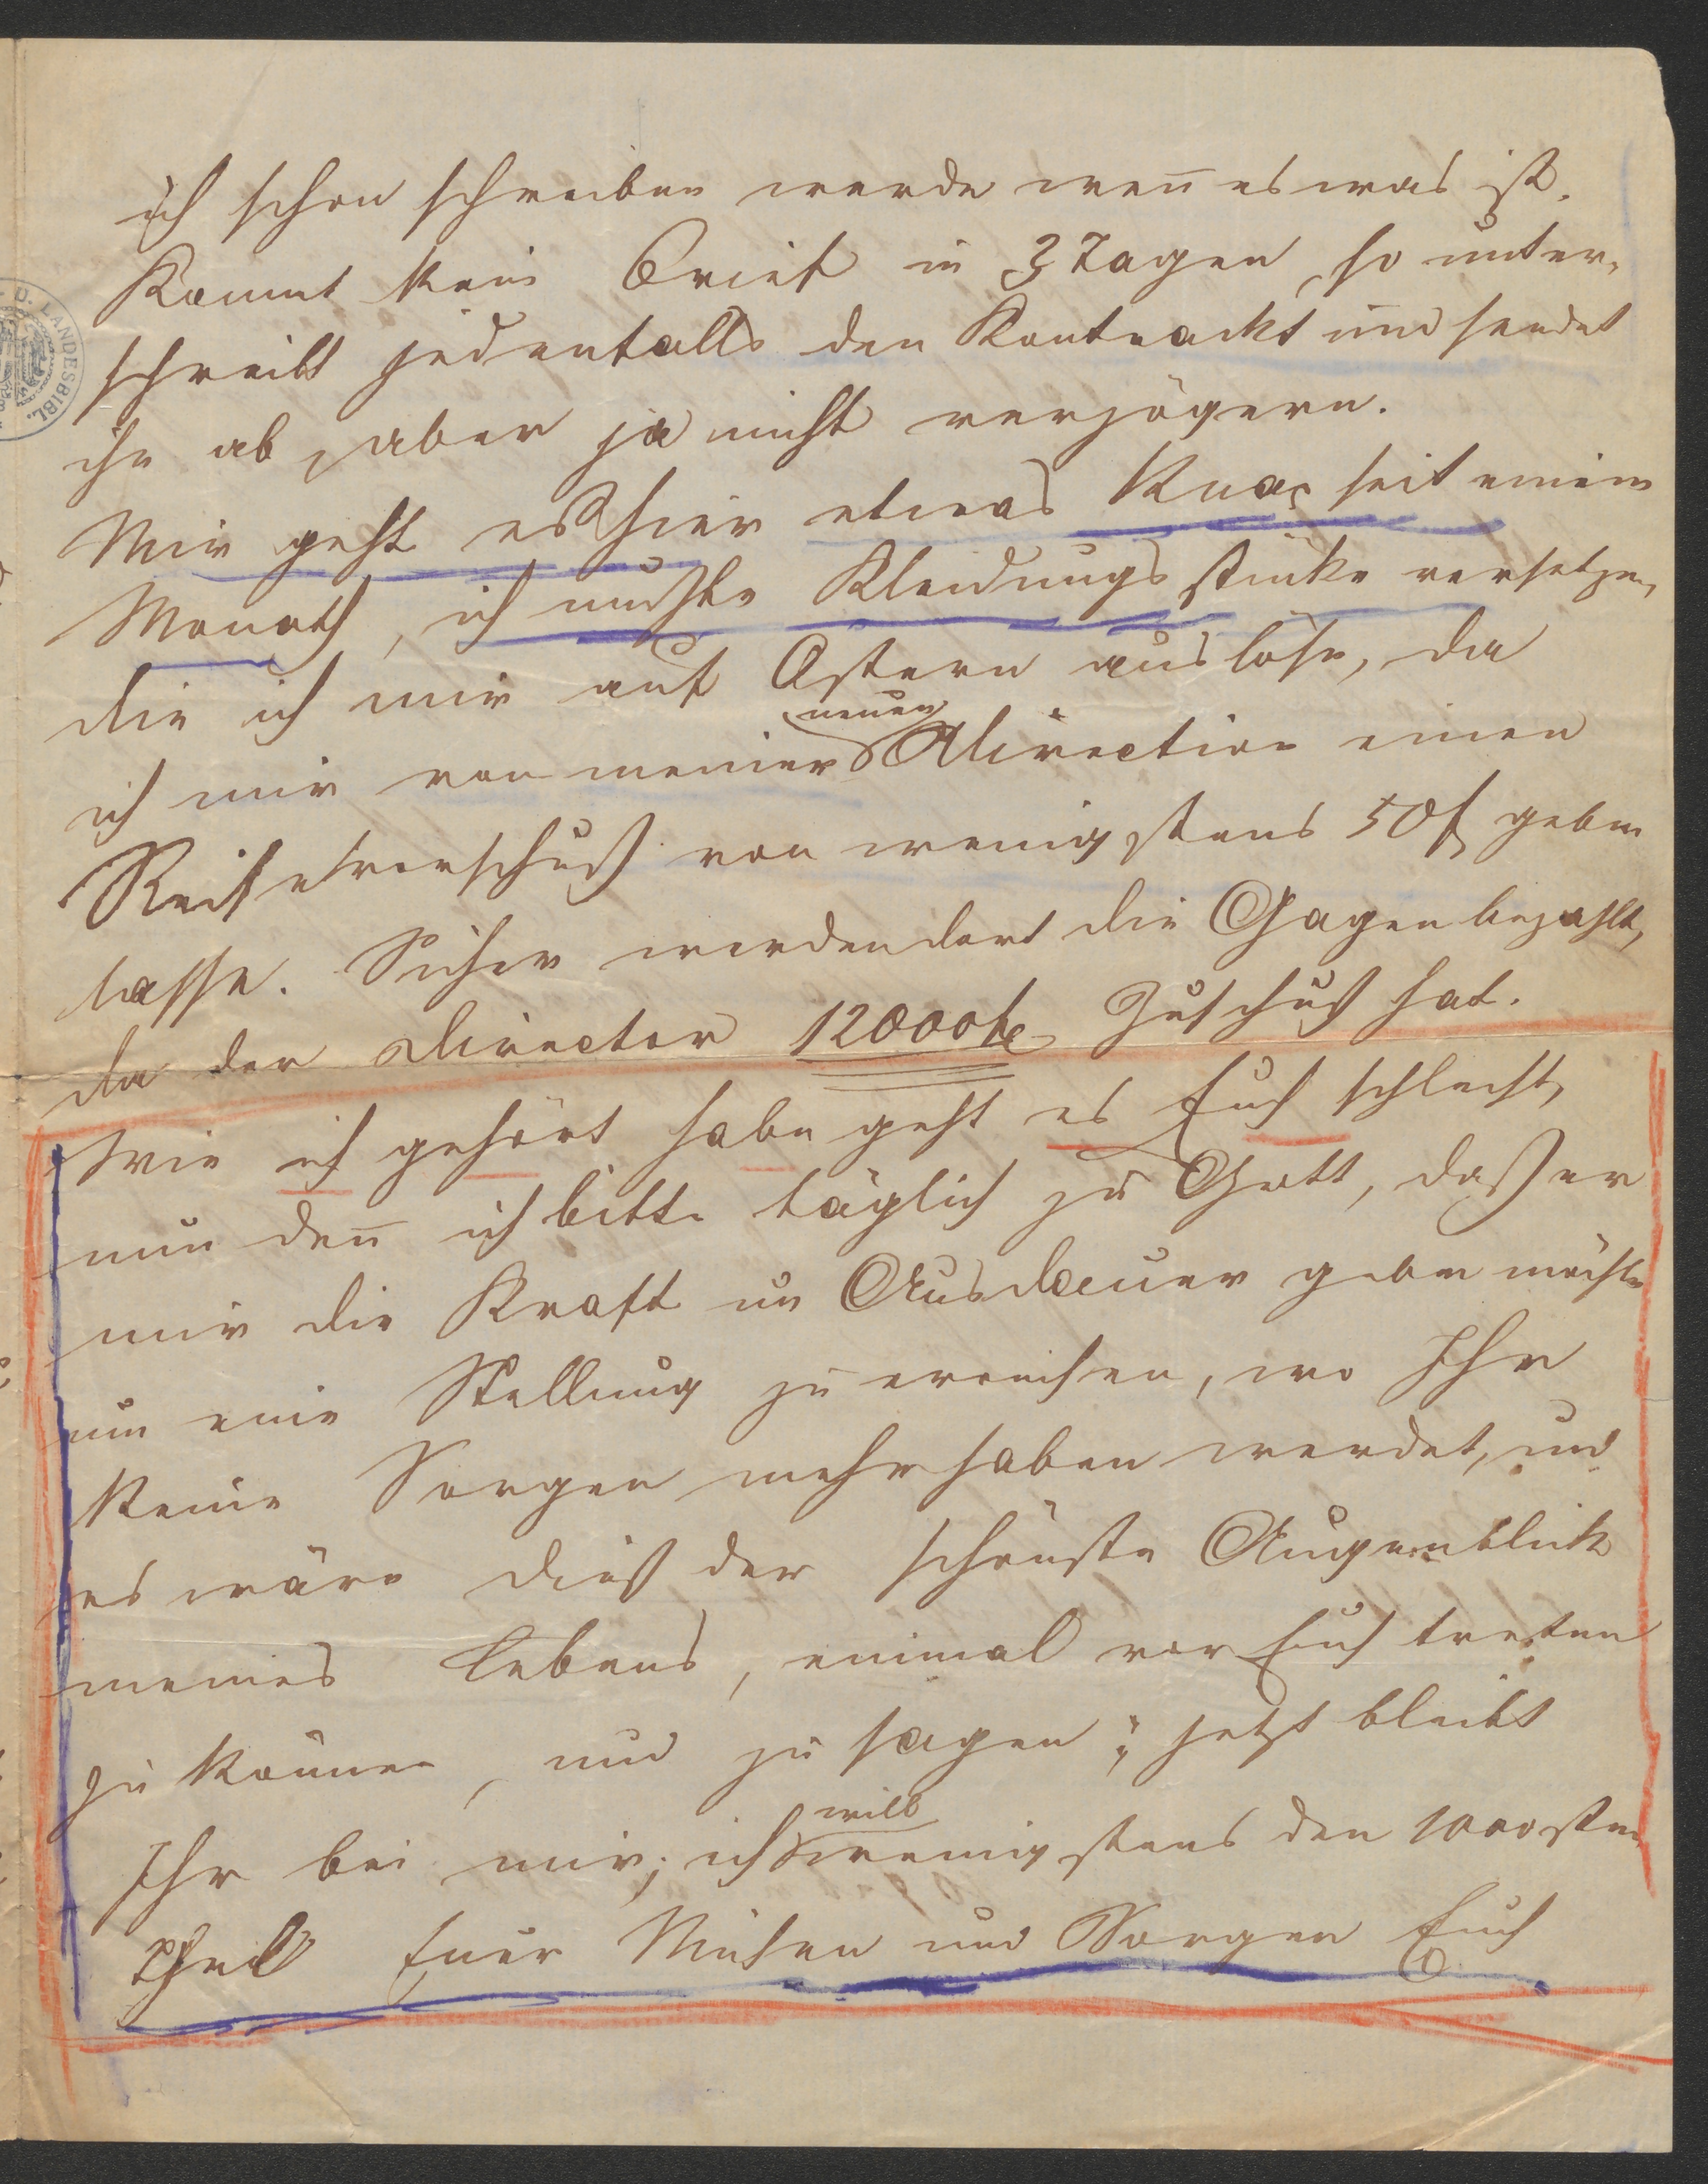 ich schon schreiben werde wen̅ es was ist.
Kommt kein Brief in 3 Tagen, so unter-
schreibt jedenfalls den Kontrackt und sendet
ihn ab, aber ja nicht verzögern.
Mir geht es hier etwas knap seit einem
Monath, ich mußte Kleidungsstücke versetzen,
die ich mir auf Ostern auslöse, da
ich mir von meiner neuen Direction einen
Reisevorschuß von wenigstens 50 f geben
lasse. Sicher werden dort die Gagen bezahlt,
da der Director 12000 f Zuschuß hat.
Wie ich gehört habe geht es Euch schlecht,
nun den̅ ich bitte täglich zu Gott, daß er
mir die Kraft un Ausdauer geben möchte
um eine Stellung zu erreichen, wo Ihr
keine Sorgen mehr haben werdet, und
es wäre dieß der schönste Augenblick
meines Lebens, einmal vor Euch treten
zu können, und zu sagen; jetzt bleibt
Ihr bei mir; ich will wenigstens den 1000sten
Theil Euer Mühen und Sorgen Euch
D. LANDESBIBL.